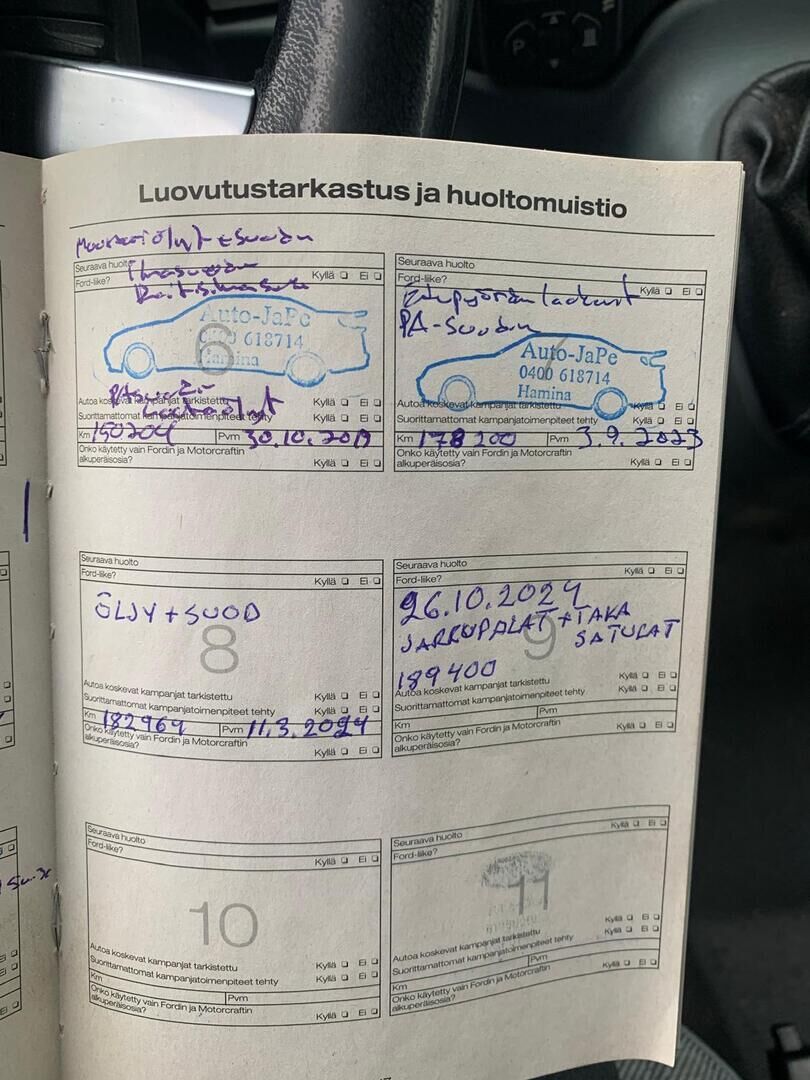 Luovutustarkastus ja huoltomuistio
Moottoriöljyt + suodin
Seuraava huolto
Ford-like? Kyllä Ei
Ilmasuodin
Raitisilmasuod
Auto-JaPe
0400 618714
Hamina
6
Autoa koskevat kampanjat tarkistettu Kyllä Ei
Suorittamattomat kampanjatoimenpiteet tehty Kyllä Ei
Km 150204 Pvm 30.10.2019
Onko käytetty vain Fordin ja Motorcraftin
alkuperäisosia? Kyllä Ei
Seuraava huolto
Ford-like? Kyllä Ei
PA-suodin
Auto-JaPe
0400 618714
Hamina
Autoa koskevat kampanjat tarkistettu Kyllä Ei
Suorittamattomat kampanjatoimenpiteet tehty Kyllä Ei
Km 178200 Pvm 3.9.2023
Onko käytetty vain Fordin ja Motorcraftin
alkuperäisosia? Kyllä Ei
Seuraava huolto
Ford-like? Kyllä Ei
ÖLJY + SUOD
8
Autoa koskevat kampanjat tarkistettu Kyllä Ei
Suorittamattomat kampanjatoimenpiteet tehty Kyllä Ei
Km 182969 Pvm 11.3.2024
Onko käytetty vain Fordin ja Motorcraftin
alkuperäisosia? Kyllä Ei
Seuraava huolto
Ford-like? Kyllä Ei
26.10.2024
JARRUPALAT + TAKA
SATULAT
9
189400
Autoa koskevat kampanjat tarkistettu Kyllä Ei
Suorittamattomat kampanjatoimenpiteet tehty Kyllä Ei
Km Pvm
Onko käytetty vain Fordin ja Motorcraftin
alkuperäisosia? Kyllä Ei
Seuraava huolto
Ford-like? Kyllä Ei
10
Autoa koskevat kampanjat tarkistettu Kyllä Ei
Suorittamattomat kampanjatoimenpiteet tehty Kyllä Ei
Km Pvm
Onko käytetty vain Fordin ja Motorcraftin
alkuperäisosia? Kyllä Ei
Seuraava huolto
Ford-like? Kyllä Ei
11
Autoa koskevat kampanjat tarkistettu Kyllä Ei
Suorittamattomat kampanjatoimenpiteet tehty Kyllä Ei
Km Pvm
Onko käytetty vain Fordin ja Motorcraftin
alkuperäisosia? Kyllä Ei